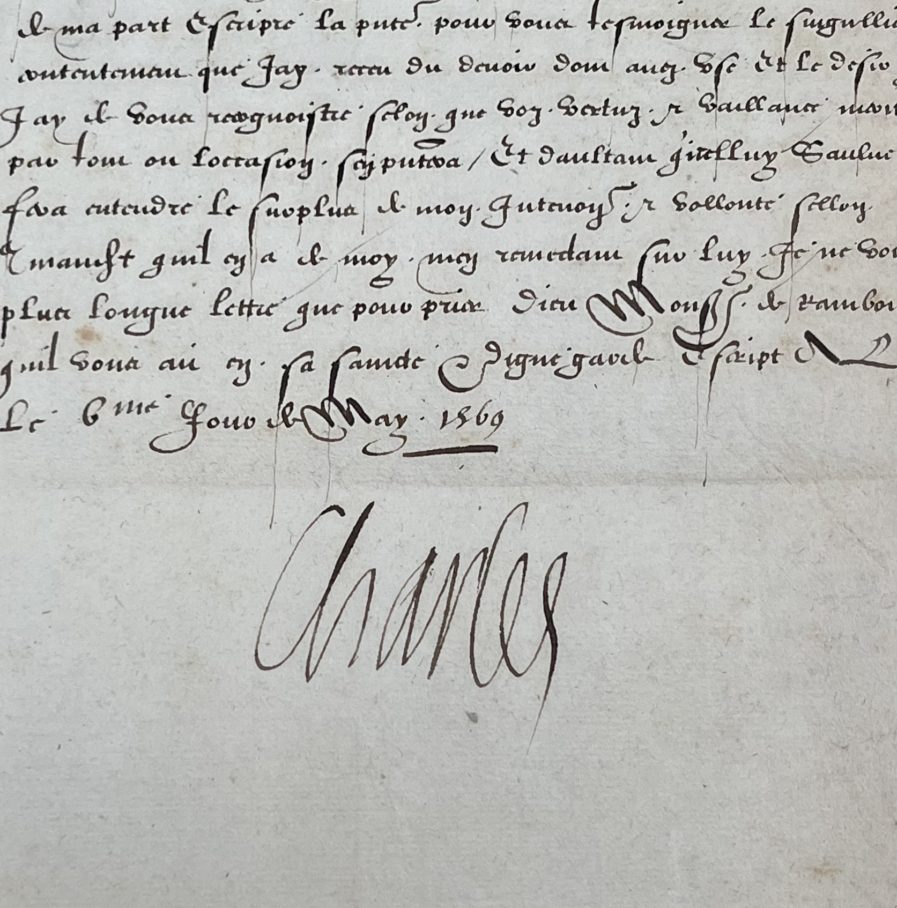 de ma part Escripre la pnte pour vous tesmoigner le singullie
contentement que Jay receu du devoir dont avez usé Et le desir
Jay de vous recognoistre selon que voz vertuz et vaillance
par tout ou loccasion sen Et daultant Saulue
fera entendre le surplus de mon Intention et vollonté sellon
quil en a de moy men remectant sur luy Je ne vou
plus longue lettre que pour prier Dieu Mons de Ramboi
quil vous ait en sa saincte et digne garde Escript
Le 6me Jour de May 1569
Charles